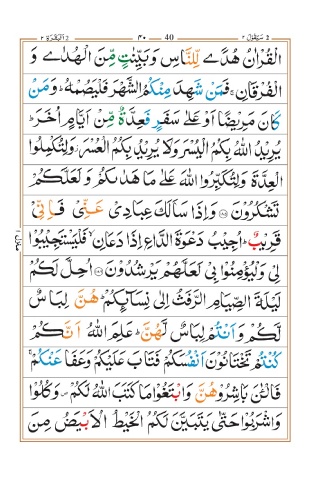 البقرة ٢ ٣٠ 40 سيقول ٢
الْقُرْاٰنُ هُدًى لِّلنَّاسِ وَبَيِّنٰتٍ مِّنَ الْهُدٰى وَ
الْفُرْقَانِ ۚ فَمَنْ شَهِدَ مِنْكُمُ الشَّهْرَ فَلْيَصُمْهُ ؕ وَمَنْ
كَانَ مَرِيْضًا اَوْ عَلٰى سَفَرٍ فَعِدَّةٌ مِّنْ اَيَّامٍ اُخَرَ ؕ
يُرِيْدُ اللّٰهُ بِكُمُ الْيُسْرَ وَلَا يُرِيْدُ بِكُمُ الْعُسْرَ ؗ وَلِتُكْمِلُوا
الْعِدَّةَ وَلِتُكَبِّرُوا اللّٰهَ عَلٰى مَا هَدٰىكُمْ وَلَعَلَّكُمْ
تَشْكُرُوْنَ ﴿۱۸۵﴾ وَاِذَا سَاَلَكَ عِبَادِيْ عَنِّيْ فَاِنِّيْ
قَرِيْبٌ ؕ اُجِيْبُ دَعْوَةَ الدَّاعِ اِذَا دَعَانِ ۙ فَلْيَسْتَجِيْبُوْا
لِيْ وَلْيُؤْمِنُوْا بِيْ لَعَلَّهُمْ يَرْشُدُوْنَ ﴿۱۸۶﴾ اُحِلَّ لَكُمْ
لَيْلَةَ الصِّيَامِ الرَّفَثُ اِلٰى نِسَآئِكُمْ ؕ هُنَّ لِبَاسٌ
لَّكُمْ وَاَنْتُمْ لِبَاسٌ لَّهُنَّ ؕ عَلِمَ اللّٰهُ اَنَّكُمْ
كُنْتُمْ تَخْتَانُوْنَ اَنْفُسَكُمْ فَتَابَ عَلَيْكُمْ وَعَفَا عَنْكُمْ ۚ
فَالْئٰنَ بَاشِرُوْهُنَّ وَابْتَغُوْا مَا كَتَبَ اللّٰهُ لَكُمْ ۪ وَكُلُوْا
وَاشْرَبُوْا حَتّٰى يَتَبَيَّنَ لَكُمُ الْخَيْطُ الْاَبْيَضُ مِنَ
منزل ١